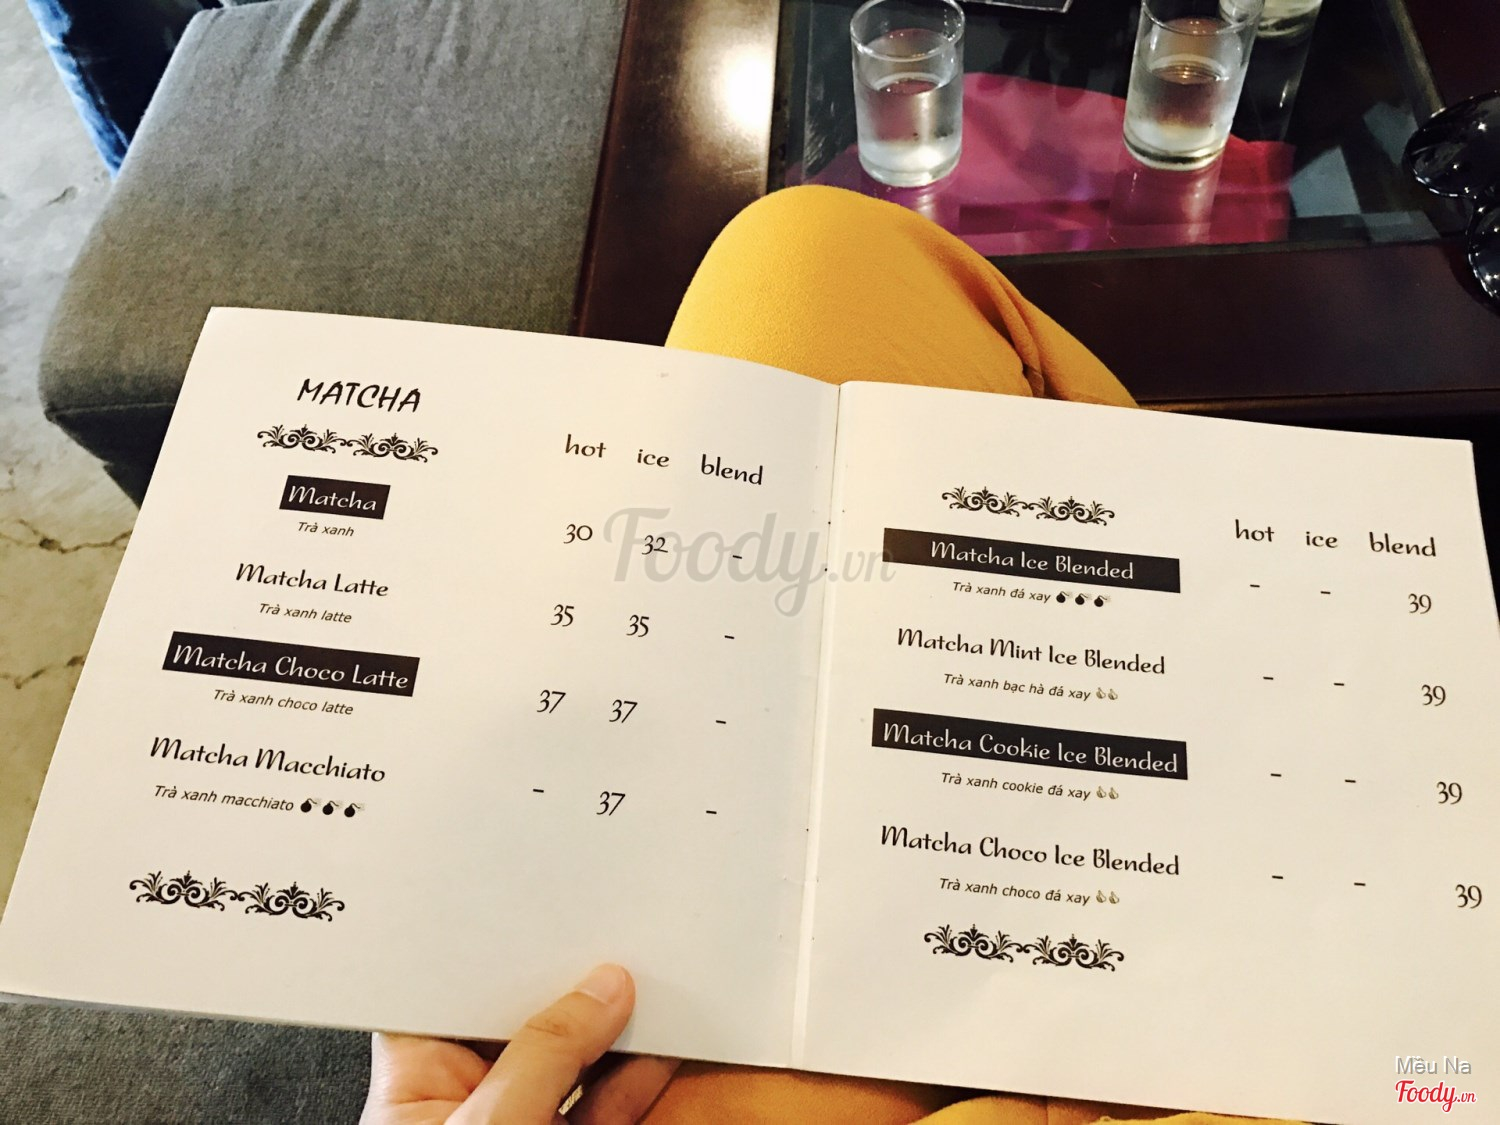 MATCHA
hot ice blend
Matcha 30 32 -
Trà xanh
Matcha Latte 35 35 -
Trà xanh latte
Matcha Choco Latte 37 37 -
Trà xanh choco latte
Matcha Macchiato - 37 -
Trà xanh macchiato
hot ice blend
Matcha Ice Blended - - 39
Trà xanh đá xay
Matcha Mint Ice Blended - - 39
Trà xanh bạc hà đá xay
Matcha Cookie Ice Blended - - 39
Trà xanh cookie đá xay
Matcha Choco Ice Blended - - 39
Trà xanh choco đá xay
Foody.vn
Mều Na
Foody.vn